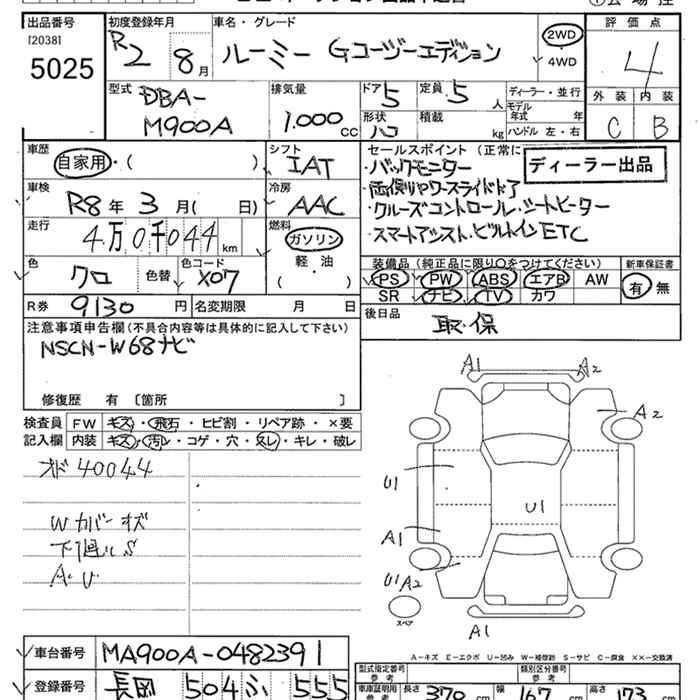 出品番号 初度登録年月 車名・グレード 評価点
[2038]
5025 R2 8月 ルーミー Gコージーエディション 2WD 4
・4WD
型式 排気量 ドア 定員 ディーラー・並行 外装 内装
DBA- 5 5人 モデル年式 年
M900A 1.000cc 形状 ハコ 積載 kg ハンドル 左・右 C B
車歴 シフト セールスポイント (正常に
自家用・( ) IAT ・バックモニター ディーラー出品
車検 冷房 両側パワースライドドア
R8年 3月( 日) AAC ・クルーズコントロール・シートヒーター
走行 燃料 ・スマートアシスト・ビルトインETC
4万0千044km ガソリン
色 色替 色コード 軽・油 装備品(純正品に限り○をつけてください) 新車保証書
クロ X07 ( ) PS PW ABS エアB AW 有 無
SR ナビ TV カワ
R券 9130円 名変期限 月 日 後日品
取・保
注意事項申告欄(不具合内容等は具体的に記入して下さい)
NSCN-W68ナビ
修復歴 有 〔箇所 〕
検査員 FW キズ・飛石・ヒビ割・リペア跡・×要
記入欄 内装 キズ・汚レ・コゲ・穴・スレ・キレ・破レ
A1 A2
A2
オド40044
U1
U1
Wカバーキズ
A1
下廻りS
A.U
U1 A2
スペア
A1
A-キズ E-エクボ U-凹み W-補修跡 S-サビ C-腐食 ××-交換済
車台番号 MA900A-0482391
型式指定番号 参考 類別区分番号 参考
登録番号 長岡 504 ふ 555
車庫証明用 参考 長さ 370cm 幅 167cm 高さ 173cm